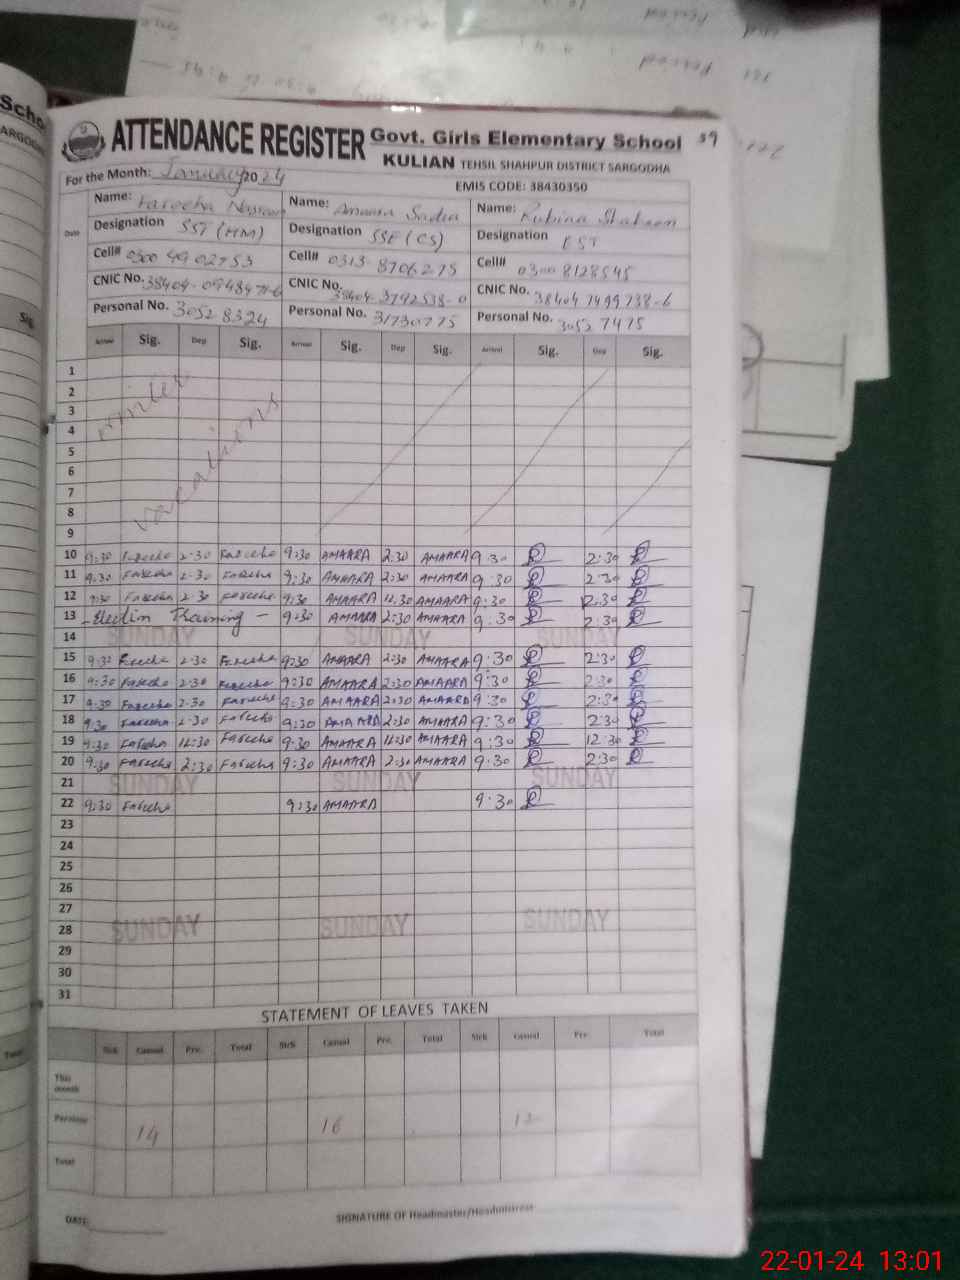 ATTENDANCE REGISTER Govt. Girls Elementary School 59
KULIAN TEHSIL SHAHPUR DISTRICT SARGODHA
For the Month: January 2024 EMIS CODE: 38430350
Date Name: Fareeha Name: Amaara Sadia Name: Rubina Shaheen
Designation SST (HM) Designation SSE (CS) Designation EST
Cell# 0300 4902753 Cell# 0313-8706275 Cell# 0300 8128545
CNIC No. CNIC No. 38404-3792538-0 CNIC No. 38404 7499738-6
Personal No. 30528324 Personal No. 31730775 Personal No. 30527475
Arrival Sig. Dep Sig. Arrival Sig. Dep Sig. Arrival Sig. Dep Sig.
1
2 winter
3
4
5
6
7 vacations
8
9
10 9:30 Fareeha 2:30 Fareeha 9:30 AMAARA 2:30 AMAARA 9:30 2:30
11 9:30 Fareeha 2:30 Fareeha 9:30 AMAARA 2:30 AMAARA 9:30 2:30
12 9:30 Fareeha 2:30 Fareeha 9:30 AMAARA 12:30 AMAARA 9:30 12:30
13 - Election Training - 9:30 AMAARA 2:30 AMAARA 9:30 2:30
14 SUNDAY SUNDAY SUNDAY
15 9:30 Fareeha 2:30 Fareeha 9:30 AMAARA 2:30 AMAARA 9:30 2:30
16 9:30 Fareeha 2:30 Fareeha 9:30 AMAARA 2:30 AMAARA 9:30 2:30
17 9:30 Fareeha 2:30 Fareeha 9:30 AMAARA 2:30 AMAARA 9:30 2:30
18 9:30 Fareeha 2:30 Fareeha 9:30 AMAARA 2:30 AMAARA 9:30 2:30
19 9:30 Fareeha 12:30 Fareeha 9:30 AMAARA 12:30 AMAARA 9:30 12:30
20 9:30 Fareeha 2:30 Fareeha 9:30 AMAARA 2:30 AMAARA 9:30 2:30
21 SUNDAY SUNDAY SUNDAY
22 9:30 Fareeha 9:30 AMAARA 9:30
23
24
25
26
27
28 SUNDAY SUNDAY SUNDAY
29
30
31
STATEMENT OF LEAVES TAKEN
Sick Casual Prv. Total Sick Casual Prv. Total Sick Casual Prv. Total
This month
Previous 14 16
Total
DATE: SIGNATURE OF Headmaster/Headmistress
22-01-24 13:01